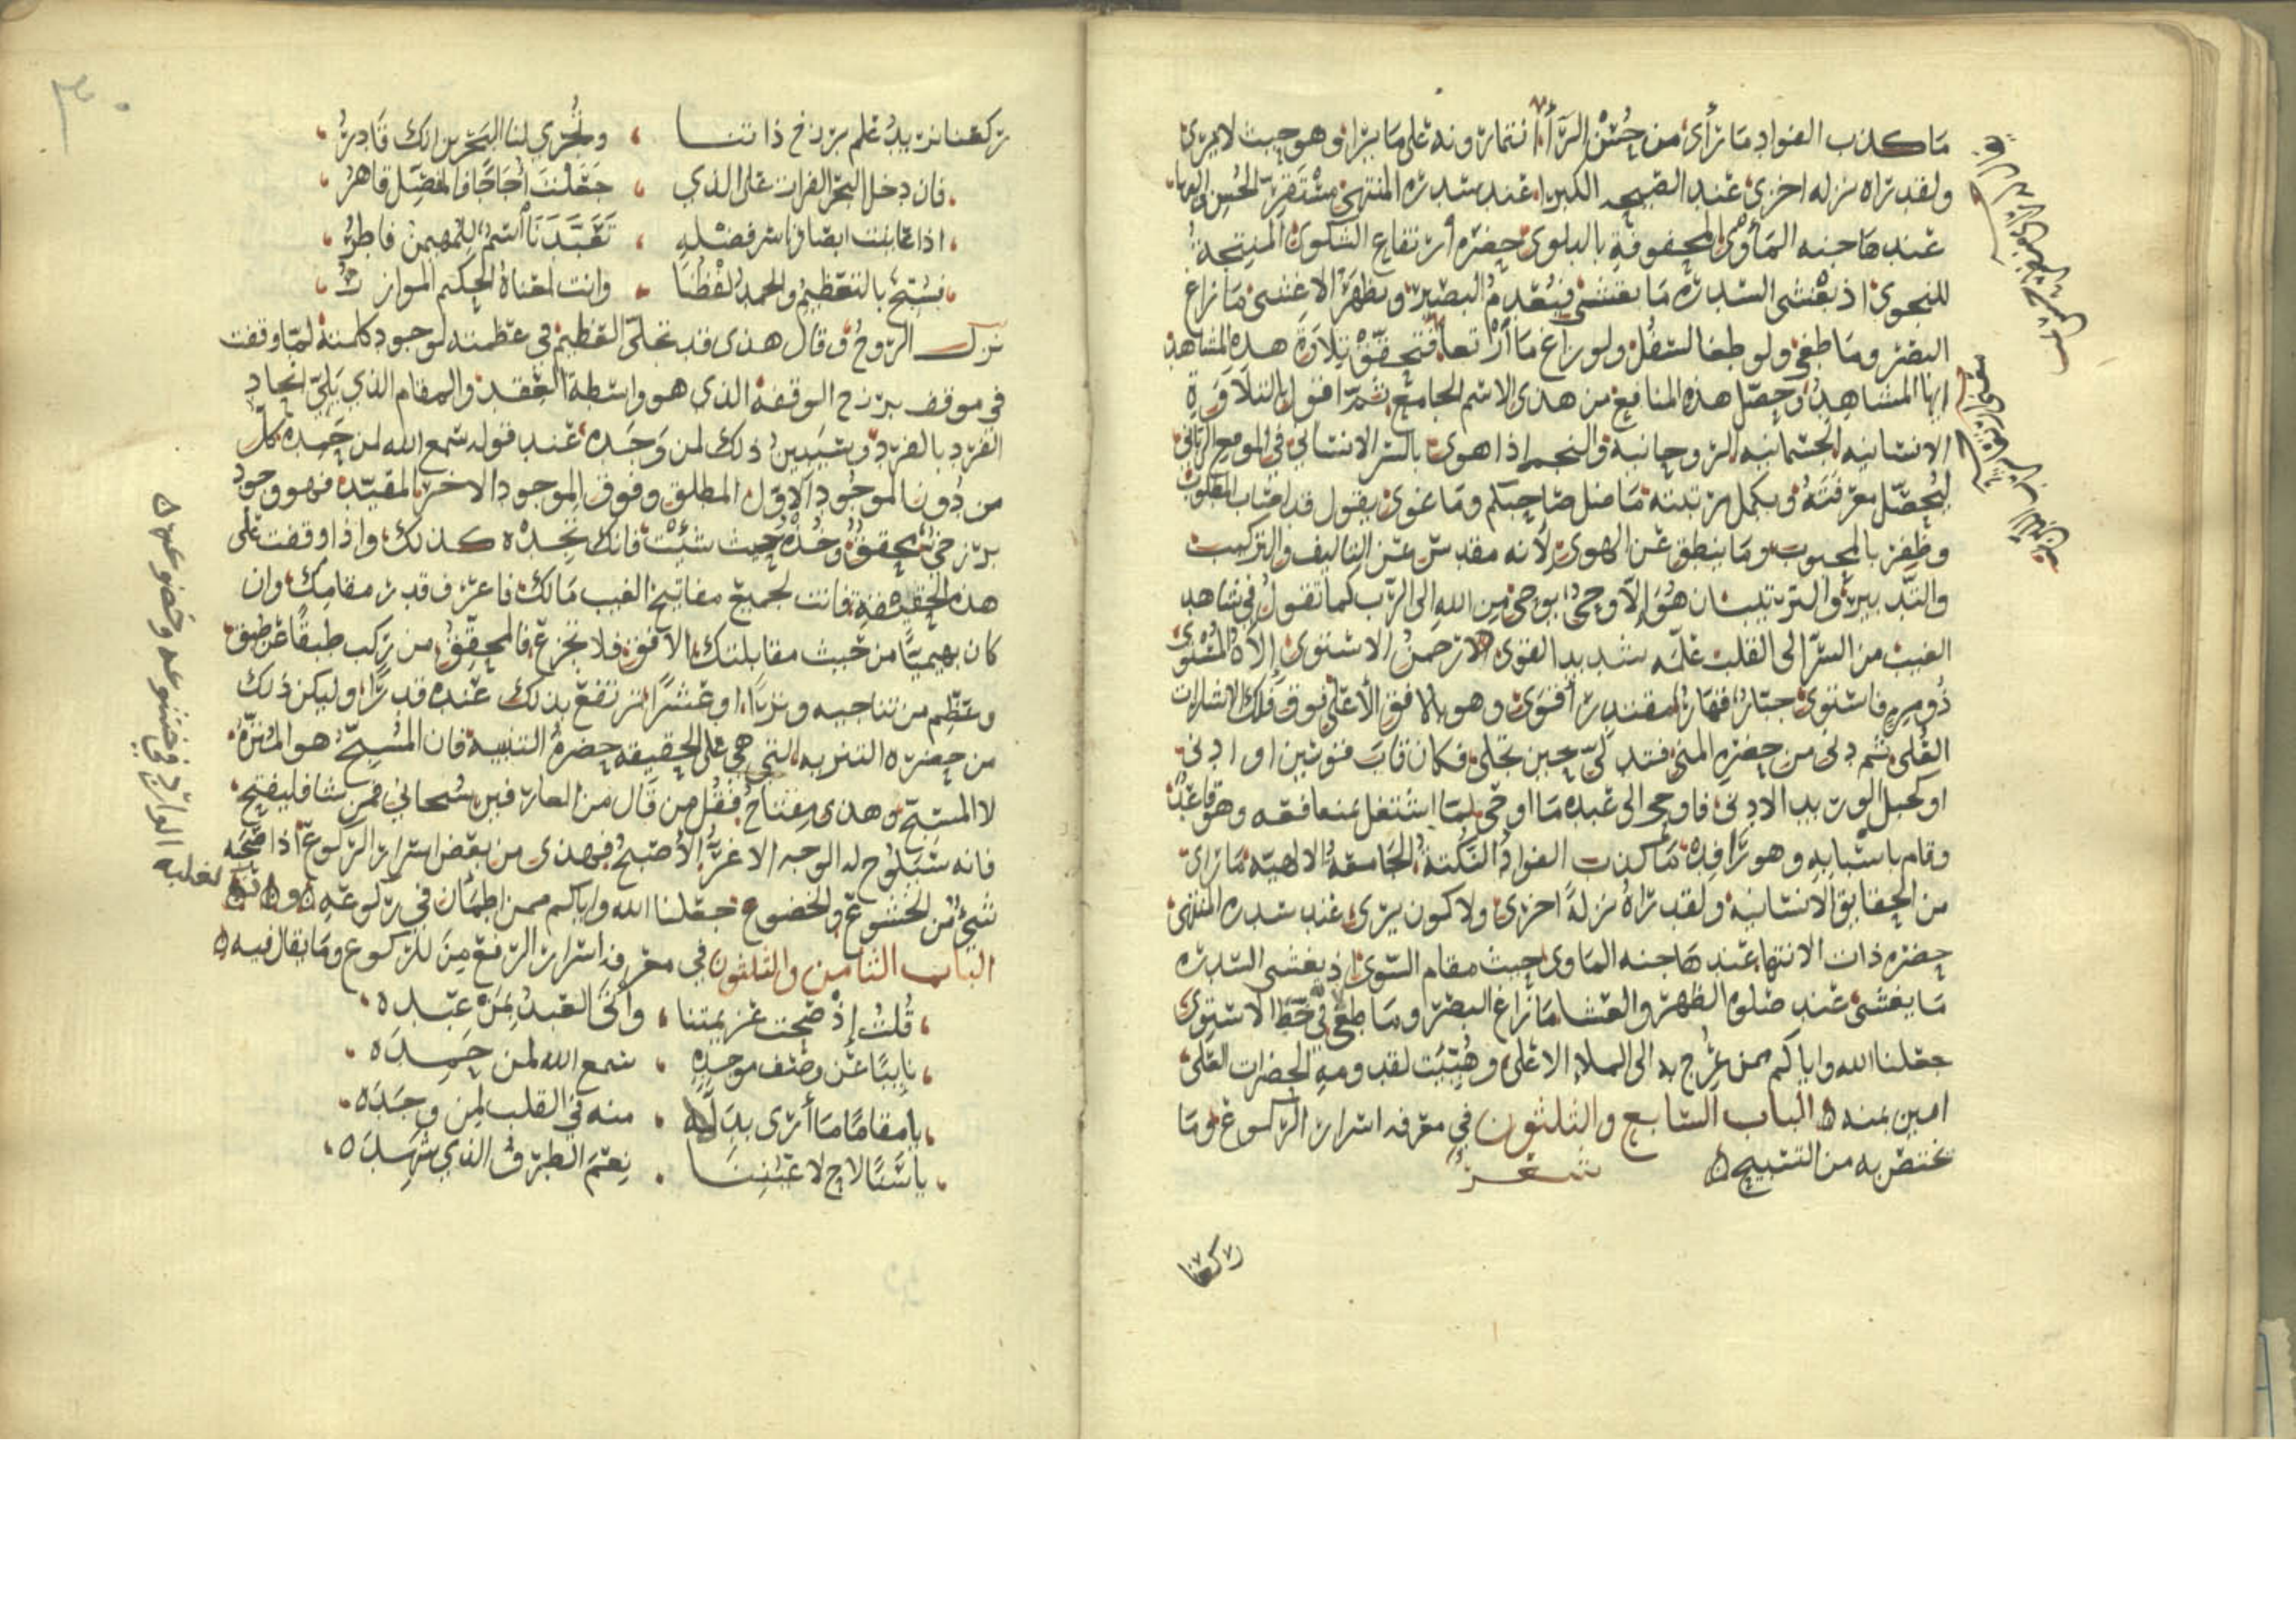 ما كذب الفواد ما رأى من حسن الرأى افتمارونه على ما يرا وهو حيث لا يرى
ولقد راه نزله اخرى عند الصيحه الكبرا عند سدره المنتهى مستقر الحسن والبها
عند ها جنه المأوى المحفوفة بالبلوى حضره ارتفاع الشكوى المنتجة
للنجوى اذ يغشى السدره ما يغشى فيعدم البصير ويظهر الاعشى ما زاغ
البصر وما طغى ولو طغا لسفل ولو زاغ ما ارتعا فتحقق تلاوة هذه المشاهد
ايها المشاهد وحصل هذه المنافع من هذى الاسم الجامع ثم اقول بالتلاوة
الانسانيه الجسمانيه الروحانيه والنجم اذا هوى بالسر الانساني في الموقع الرباني
ليحصل معرفته ويكمل مرتبته ما ضل صاحبكم وما غوى يقول قد اصاب المطلوب
وظفر بالمحبوب وما ينطق عن الهوى لأنه مقدس عن التاليف والتركيب
والتدبير والترتيب ان هو الا وحي يوحى من الله الى الرب كما تقول في شاهد
الغيب من السر الى القلب علمه شديد القوى الرحمن الاستوى إلاه المسوى
ذو مره فاستوى جبار قهار مقتدر اقوى وهو بالافق الأعلى فوق فلك الاشارات
العلى ثم دنى من حضره المنى فتدلى حين تجلى فكان قاب قوسين او ادنى
او كحبل الوريد الادنى فاوحى الى عبده ما اوحى لما اشتغل عنها فقه وهو قاعد
وقام باسبابه وهو راقد ما كذب الفواد النكتة الجامعة الالهيه ما راى
من الحقايق الانسانيه ولقد راه نزلة اخرى ولا كون يرى عند سدره المنتهى
حضره ذات الانتها عند ها جنه الماوى حيث مقام السوى اذ يغشى السدره
ما يغشى عند صلوه الظهر والعشا ما زاغ البصر وما طغى في خط الاستوى
جعلنا الله واياكم ممن عرج به الى الملاء الاعلى وهيئت لقدومه الحضرات العلى
امين بمنه الباب السابع والثلثون في معرفه اسرار الركوع وما
يختص به من التسبيح شعر
ركعنا
ركعنا نريد علم برزخ ذاتنا وتجري لنا البحرين انك قادر
فان دخل البحر الفرات على الذي جعلت اجاجا فالمفيل قاهر
اذا عاينت ابصارنا سر فضله تعبدنا اسم المهيمن فاطر
نسبح بالتعظيم والحمد لفظنا وانت لمعناه الحكيم الموازر
نزل الروح وقال هذى قد تجلى العظيم في عظمته لوجود كلمته لما وقفت
في موقف برزخ الوقفة الذي هو واسطة العقد والمقام الذي يلي اتحاد
الفرد بالفرد وسيبدين ذلك لمن وجده عند قوله سمع الله لمن حمده كل
من دون الموجود الاول المطلق وفوق الموجود الاخر المقيد فهو وجود
برزخي تحقق وخذه حيث شئت فانك تجده كذلك واذا وقفت على
هذه الحقيقة فانت لجميع مفاتيح الغيب مالك فاعرف قدر مقامك وان
كان بهيميا من حيث مقابلتك الافق فلا تجزع فالمحقق من ركب طبقا عن طبق
وعظم من تناجيه وتريا او عشرا ترتفع بذلك عنده قدرا وليكن ذلك
من حضره التنزيه التي هي على الحقيقه حضره التنبيه فان المسبح هو المنزه
لا المسبح وهذى مفتاح فقل من قال من العارفين سبحاني فمن شا فليفتح
فانه سيلوح له الوجه الاغر الأصبح فهذى من بعض اسرار الركوع اذا صحبه
شيء من الخشوع والخضوع جعلنا الله واياكم ممن اطمأن في ركوعه
الباب الثامن والثلثون في معرفه اسرار الرفع من الركوع وما يقال فيه
قلت إذ صحت عزيمتنا وأتى العبد بمن عبده
نايبا عن وصف موجده سمع الله لمن حمده
يا مقاما ما أرى بدلا منه في القلب لمن وجده
يا سنا لاح لاعيننا نعم الطرف الذي شهده